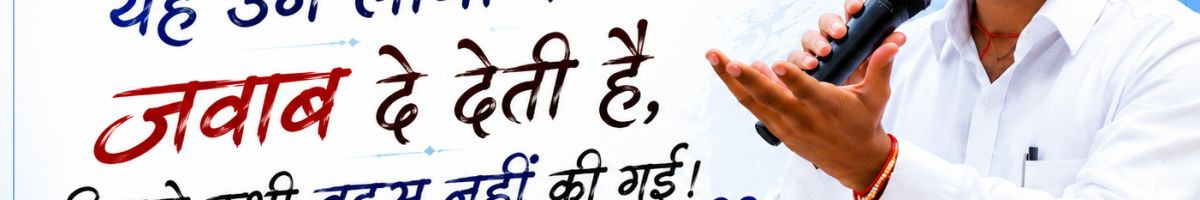 यह उन
जवाब दे देती है,
कभी बहस नहीं की गई!